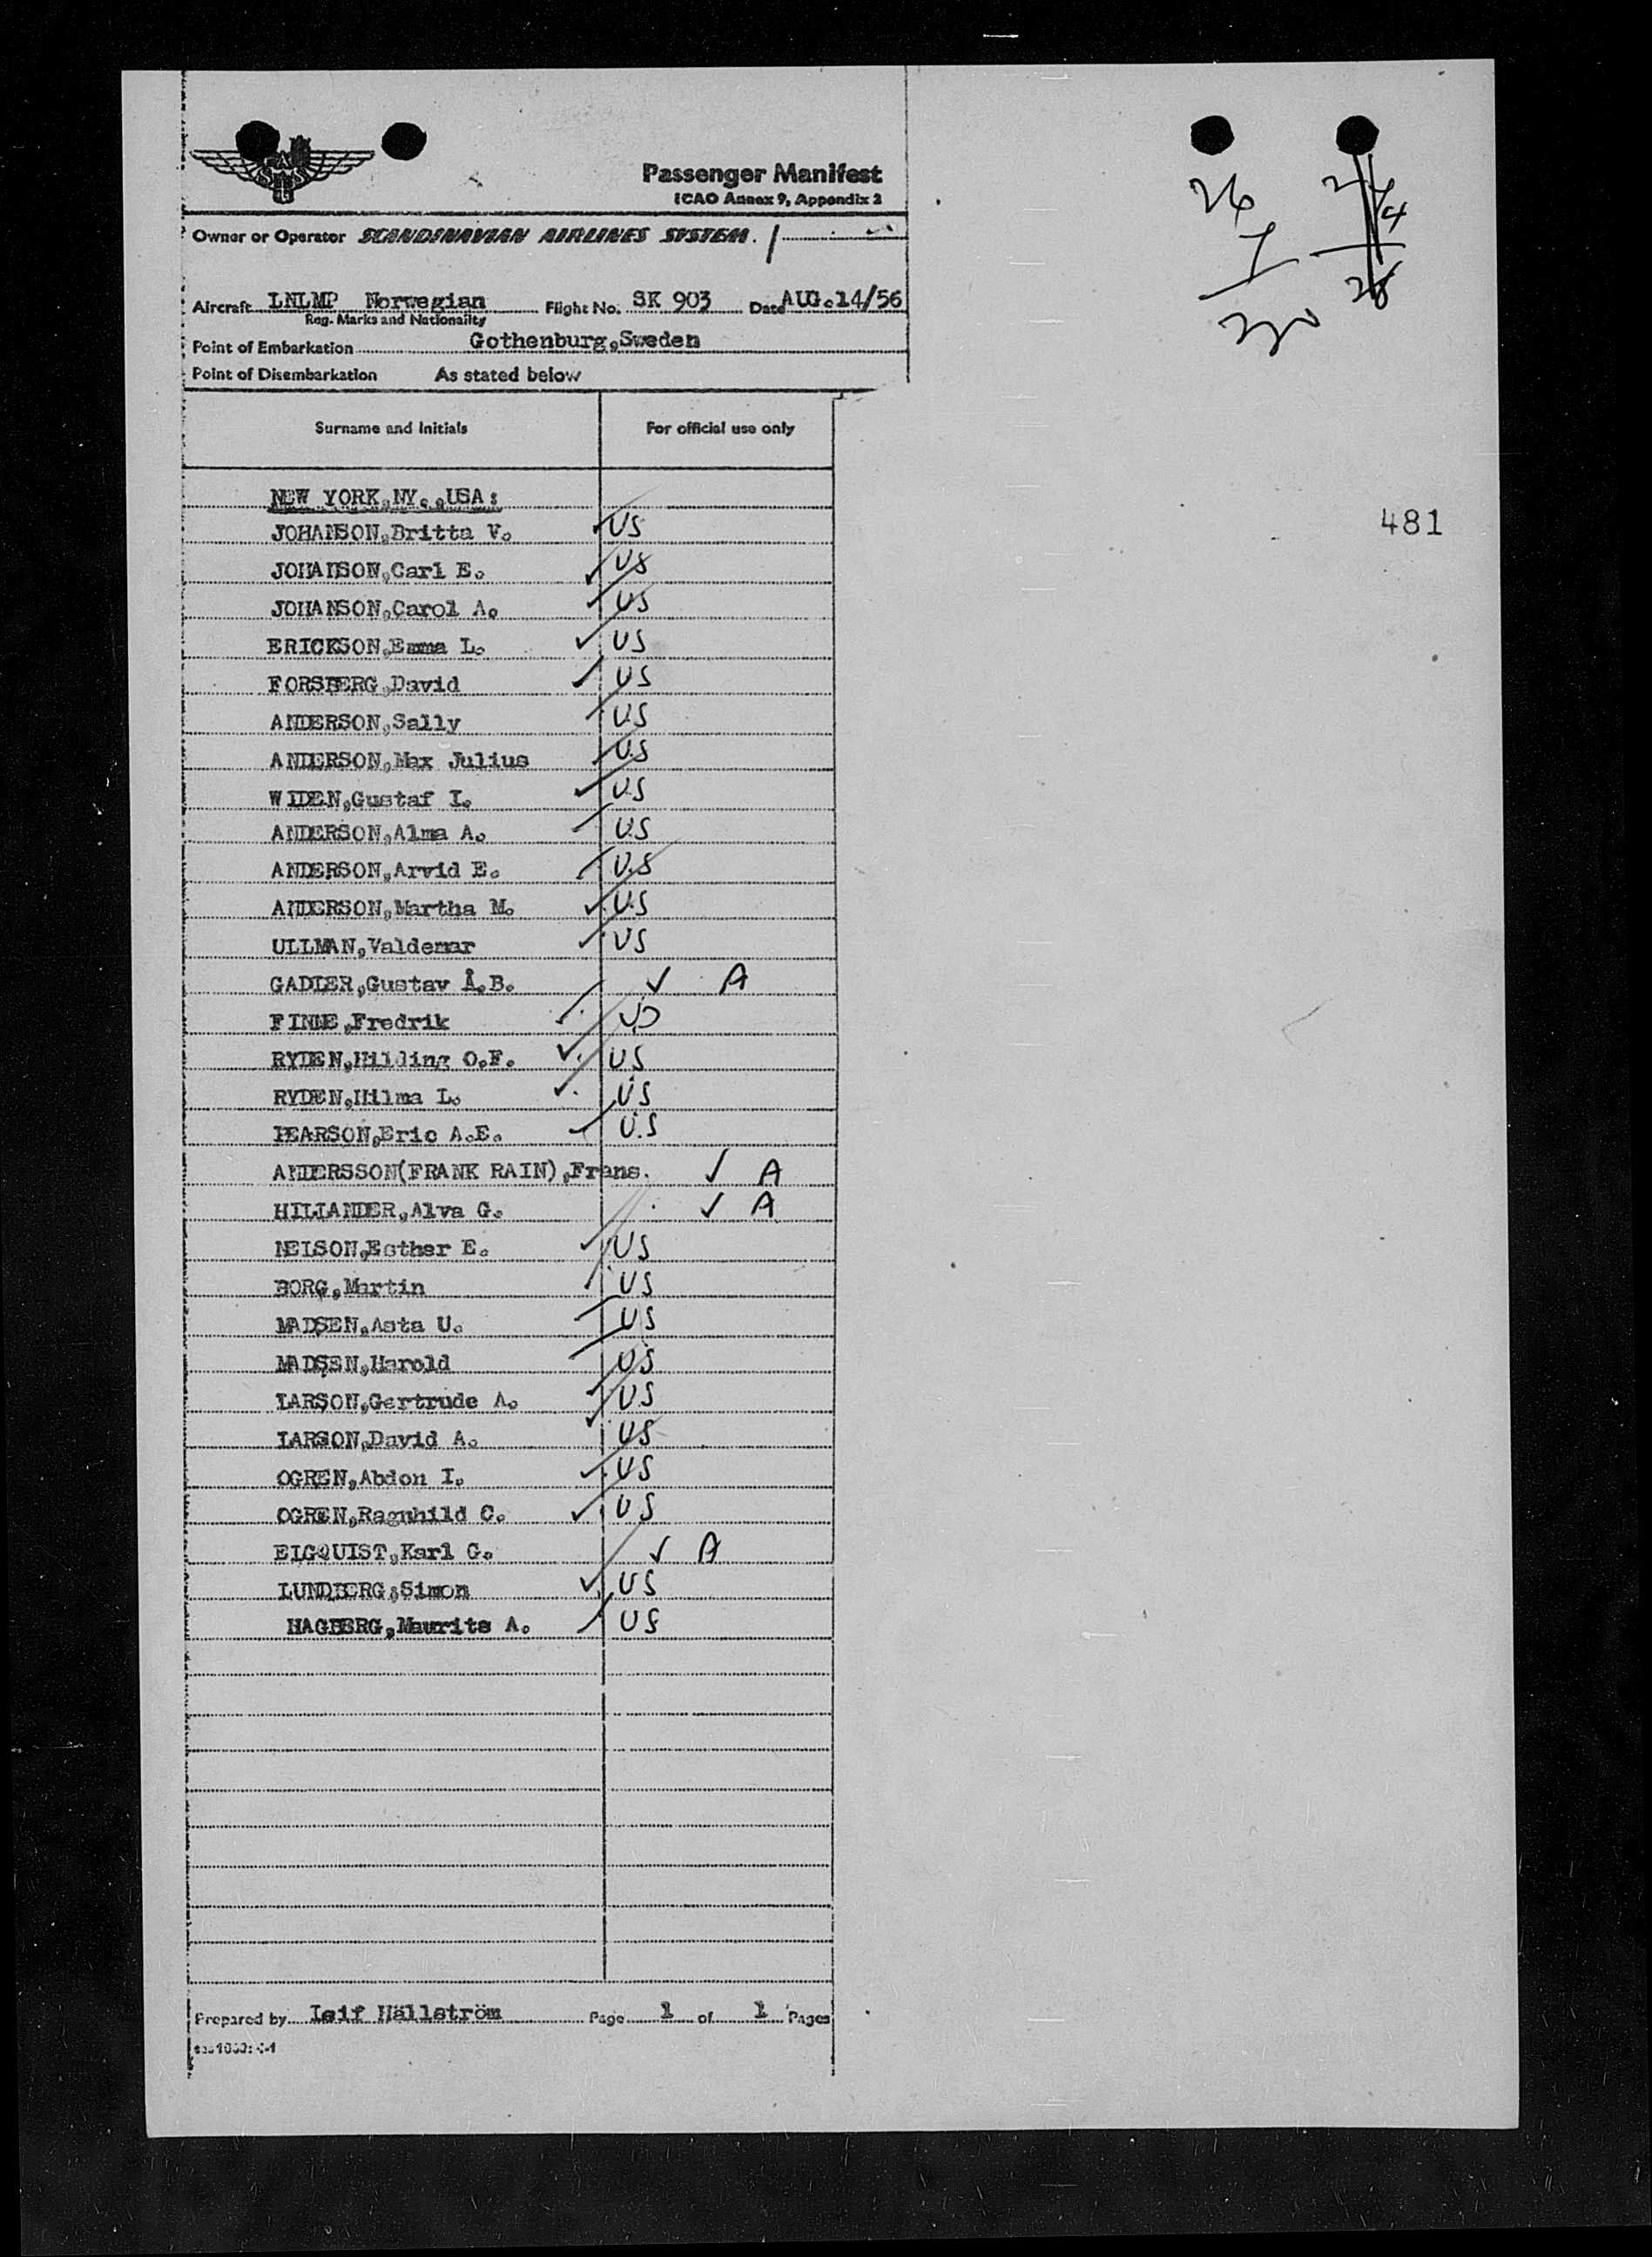 SAS
Passenger Manifest
ICAO Annex 9, Appendix 2
Owner or Operator SCANDINAVIAN AIRLINES SYSTEM.
Aircraft LNLMP Norwegian Flight No. SK 903 Date AUG.14/56
Reg. Marks and Nationality
Point of Embarkation Gothenburg,Sweden
Point of Disembarkation As stated below
Surname and Initials For official use only
NEW YORK,NY.,USA:
JOHANSON,Britta V. US
JOHANSON,Carl E. US
JOHANSON,Carol A. US
ERICKSON,Emma L. US
FORSBERG,David US
ANDERSON,Sally US
ANDERSON,Max Julius US
WIDEN,Gustaf I. US
ANDERSON,Alma A. US
ANDERSON,Arvid E. US
ANDERSON,Martha M. US
ULLMAN,Valdemar US
GADLER,Gustav Å.B. ✓ A
FINNE,Fredrik US
RYDEN,Hilding O.F. US
RYDEN,Hilma L. US
PEARSON,Eric A.E. U.S
ANDERSSON(FRANK RAIN),Frans. ✓ A
HILLANDER,Alva G. ✓ A
NELSON,Esther E. US
BORG,Martin US
MADSEN,Asta U. US
MADSEN,Harold US
LARSON,Gertrude A. US
LARSON,David A. US
OGREN,Abdon I. US
OGREN,Ragnhild C. US
ELGQUIST,Karl G. ✓ A
LUNDBERG,Simon US
HAGBERG,Maurits A. US
Prepared by Leif Hällström Page 1 of 1 Pages
26
4
30
481